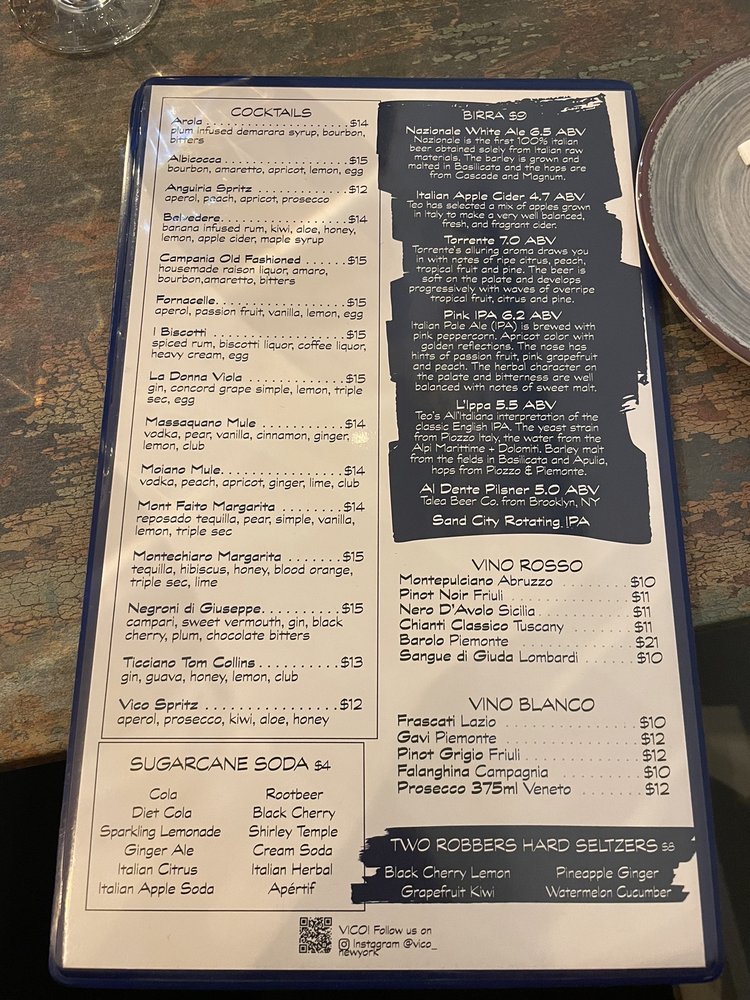 COCKTAILS
Arola . . . . . . . . . . . . . . . . . . . . . . . . . . $14
plum infused demarara syrup, bourbon,
bitters
Albicocca . . . . . . . . . . . . . . . . . . . . . . $15
bourbon, amaretto, apricot, lemon, egg
Anguiria Spritz . . . . . . . . . . . . . . . . $12
aperol, peach, apricot, prosecco
Belvedere. . . . . . . . . . . . . . . . . . . . . $14
banana infused rum, kiwi, aloe, honey,
lemon, apple cider, maple syrup
Campania Old Fashioned . . . . . . $15
housemade raison liquor, amaro,
bourbon,amaretto, bitters
Fornacelle. . . . . . . . . . . . . . . . . . . . . $15
aperol, passion fruit, vanilla, lemon, egg
I Biscotti . . . . . . . . . . . . . . . . . . . . . . $15
spiced rum, biscotti liquor, coffee liquor,
heavy cream, egg
La Donna Viola . . . . . . . . . . . . . . . . $15
gin, concord grape simple, lemon, triple
sec, egg
Massaquano Mule . . . . . . . . . . . . . . $14
vodka, pear, vanilla, cinnamon, ginger,
lemon, club
Moiano Mule. . . . . . . . . . . . . . . . . . . $14
vodka, peach, apricot, ginger, lime, club
Mont Faito Margarita . . . . . . . . . . $14
reposado tequilla, pear, simple, vanilla,
lemon, triple sec
Montechiaro Margarita . . . . . . . . . $15
tequilla, hibiscus, honey, blood orange,
triple sec, lime
Negroni di Giuseppe. . . . . . . . . . . . $15
campari, sweet vermouth, gin, black
cherry, plum, chocolate bitters
Ticciano Tom Collins . . . . . . . . . . . $13
gin, guava, honey, lemon, club
Vico Spritz . . . . . . . . . . . . . . . . . . . . $12
aperol, prosecco, kiwi, aloe, honey
SUGARCANE SODA $4
Cola
Diet Cola
Sparkling Lemonade
Ginger Ale
Italian Citrus
Italian Apple Soda
Rootbeer
Black Cherry
Shirley Temple
Cream Soda
Italian Herbal
Apértif
BIRRA $9
Nazionale White Ale 6.5 ABV
Nazionale is the first 100% italian
beer obtained solely from Italian raw
materials. The barley is grown and
malted in Basilicata and the hops are
from Cascade and Magnum.
Italian Apple Cider 4.7 ABV
Teo has selected a mix of apples grown
in Italy to make a very well balanced,
fresh, and fragrant cider.
Torrente 7.0 ABV
Torrente's alluring aroma draws you
in with notes of ripe citrus, peach,
tropical fruit and pine. The beer is
soft on the palate and develops
progressively with waves of overripe
tropical fruit, citrus and pine.
Pink IPA 6.2 ABV
Italian Pale Ale (IPA) is brewed with
pink peppercorn. Apricot color with
golden reflections. The nose has
hints of passion fruit, pink grapefruit
and peach. The herbal character on
the palate and bitterness are well
balanced with notes of sweet malt.
L'Ippa 5.5 ABV
Teo's All'Italiana interpretation of the
classic English IPA. The yeast strain
from Piozzo Italy, the water from the
Alpi Marittime + Dolomiti. Barley malt
from the fields in Basilicata and Apulia,
hops from Piozzo & Piemonte.
Al Dente Pilsner 5.0 ABV
Talea Beer Co. from Brooklyn, NY
Sand City Rotating IPA
VINO ROSSO
Montepulciano Abruzzo . . . . . . . . . . $10
Pinot Noir Friuli . . . . . . . . . . . . . . . . . $11
Nero D'Avolo Sicilia . . . . . . . . . . . . . $11
Chianti Classico Tuscany . . . . . . . . . $11
Barolo Piemonte . . . . . . . . . . . . . . . . $21
Sangue di Giuda Lombardi . . . . . . . $10
VINO BLANCO
Frascati Lazio . . . . . . . . . . . . . . . . . . $10
Gavi Piemonte . . . . . . . . . . . . . . . . . . $12
Pinot Grigio Friuli . . . . . . . . . . . . . . . $12
Falanghina Campagnia . . . . . . . . . . $10
Prosecco 375ml Veneto . . . . . . . . . $12
TWO ROBBERS HARD SELTZERS $8
Black Cherry Lemon Pineapple Ginger
Grapefruit Kiwi Watermelon Cucumber
VICO! Follow us on
Instagram @vico_
newyork